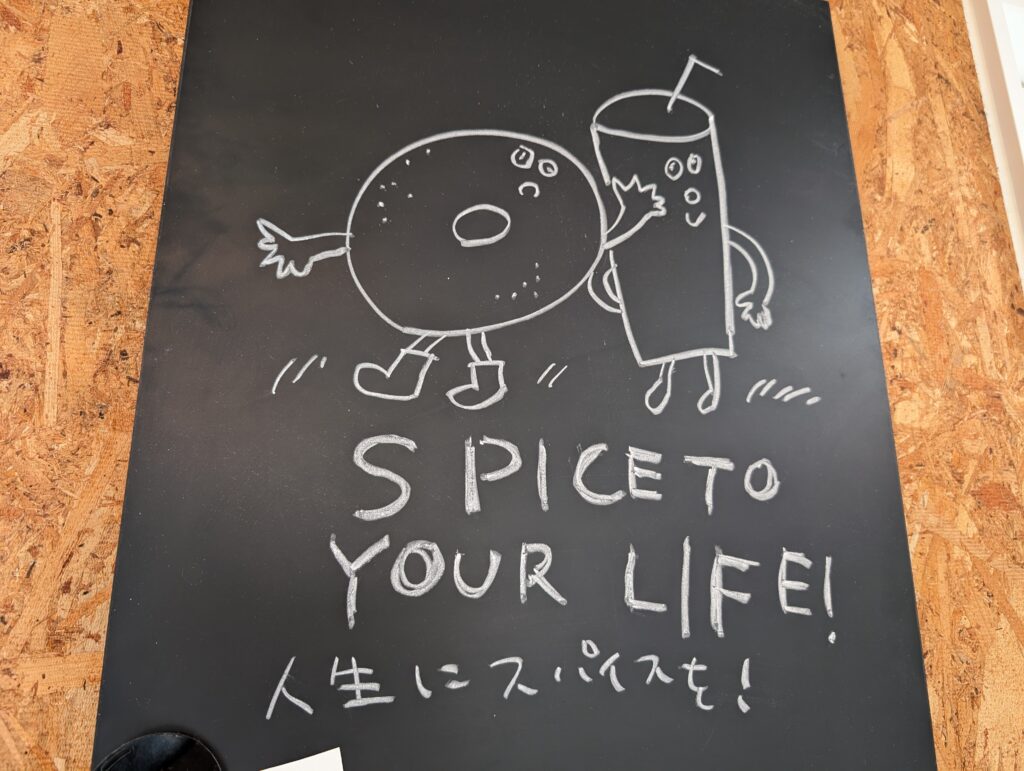 SPICE TO
YOUR LIFE!
人生にスパイスを!